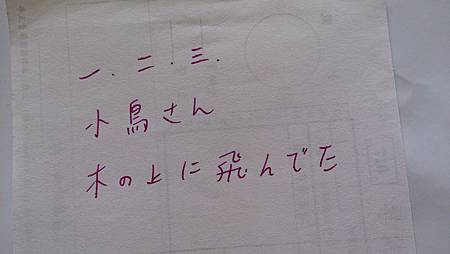 一．二．三．
小鳥さん
木の上に飛んでた